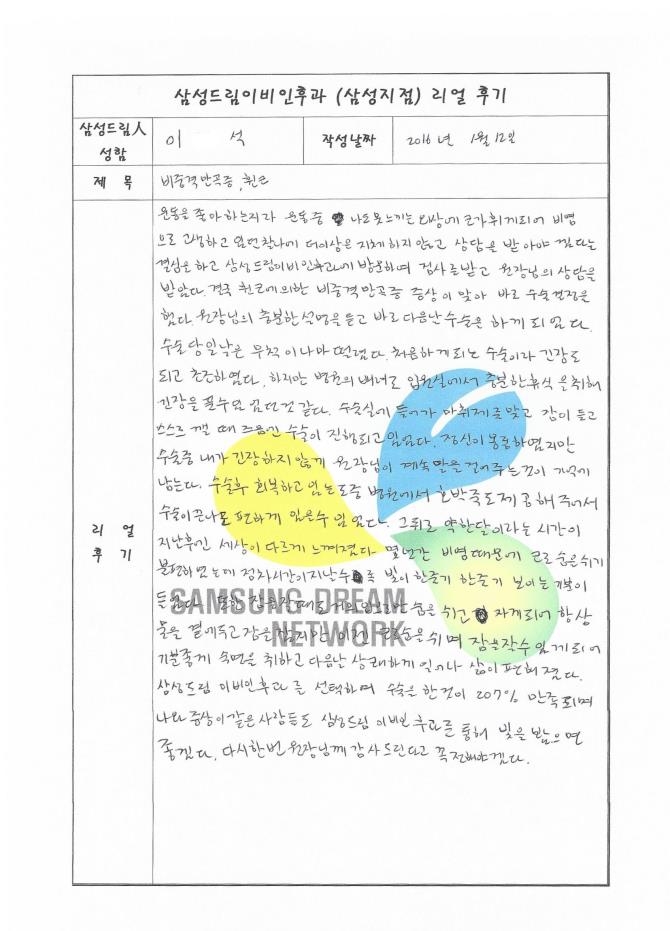 삼성드림이비인후과 (삼성지점) 리얼 후기
삼성드림人 성함
이 석
작성날짜
2016년 1월 12일
제 목
비중격만곡증, 휜코
리 얼 후 기
운동을 좋아하는지라 운동중 나도못느끼는 외상에 코가휘게되어 비염
으로 고생하고 있던찰나에 더이상은 지체하지 않고 상담을 받아야 겠다는
결심을 하고 삼성드림이비인후과에 방문하여 검사를받고 원장님의 상담을
받았다. 결국 휜코에의한 비중격만곡증 증상이 맞아 바로 수술결정을
했다. 원장님의 충분한 설명을듣고 바로다음날 수술을 하게 되었다.
수술당일날은 무척이나마 떨렸다. 처음하게되는 수술이라 긴장도
되고 초조하였다. 하지만 병원의 배려로 입원실에서 충분한휴식을취해
긴장을 풀수있었던것 같다. 수술실에 들어가 마취제를맞고 잠이 들고
스스로 깰 때 즈음엔 수술이 진행되고있었다. 정신이 몽롱하였지만
수술중 내가 긴장하지 않게 원장님이 계속말을걸어주는것이 기억에
남는다. 수술후 회복하고 있는도중 병원에서 호박죽도제공해주어서
수술이끝나도 편하게 있을수 있었다. 그뒤로 약한달이라는 시간이
지난후엔 세상이 다르게 느껴졌다 몇년간 비염때문에 코로숨을쉬기
불편하였는데 점차시간이지날수록 빛이 한줄기 한줄기 보이는 기분이
들었다. 또한 잠을잘때도 숨을 쉬고 자게되어 항상
물을 곁에두고 잠을 잤지만 이젠 코로숨을쉬며 잠을잘수 있게되어
기분좋게 숙면을 취하고 다음날 상쾌하게 일어나 삶이 편해졌다.
삼성드림 이비인후과를 선택하여 수술을 한것이 207% 만족되며
나와 증상이같은사람들도 삼성드림 이비인후과를 통해 빛을 받으면
좋겠다. 다시한번 원장님께 감사드린다고 꼭전해야겠다.
SAMSUNG DREAM
NETWORK